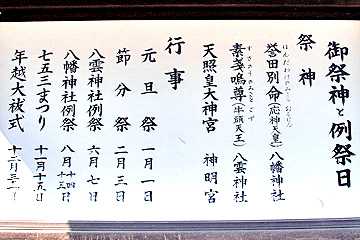 御祭神と例祭日
祭神
誉田別命(応神天皇)八幡神社
ほんだわけのみこと
素戔嗚尊(牛頭天王)八雲神社
すさのおのみこと
天照皇大神宮 神明宮
行事
元旦祭 一月一日
節分祭 二月三日
八雲神社例祭 六月七日
八幡神社例祭 八月十四日十五日
七五三まつり 十一月十五日
年越大祓式 十二月三十一日